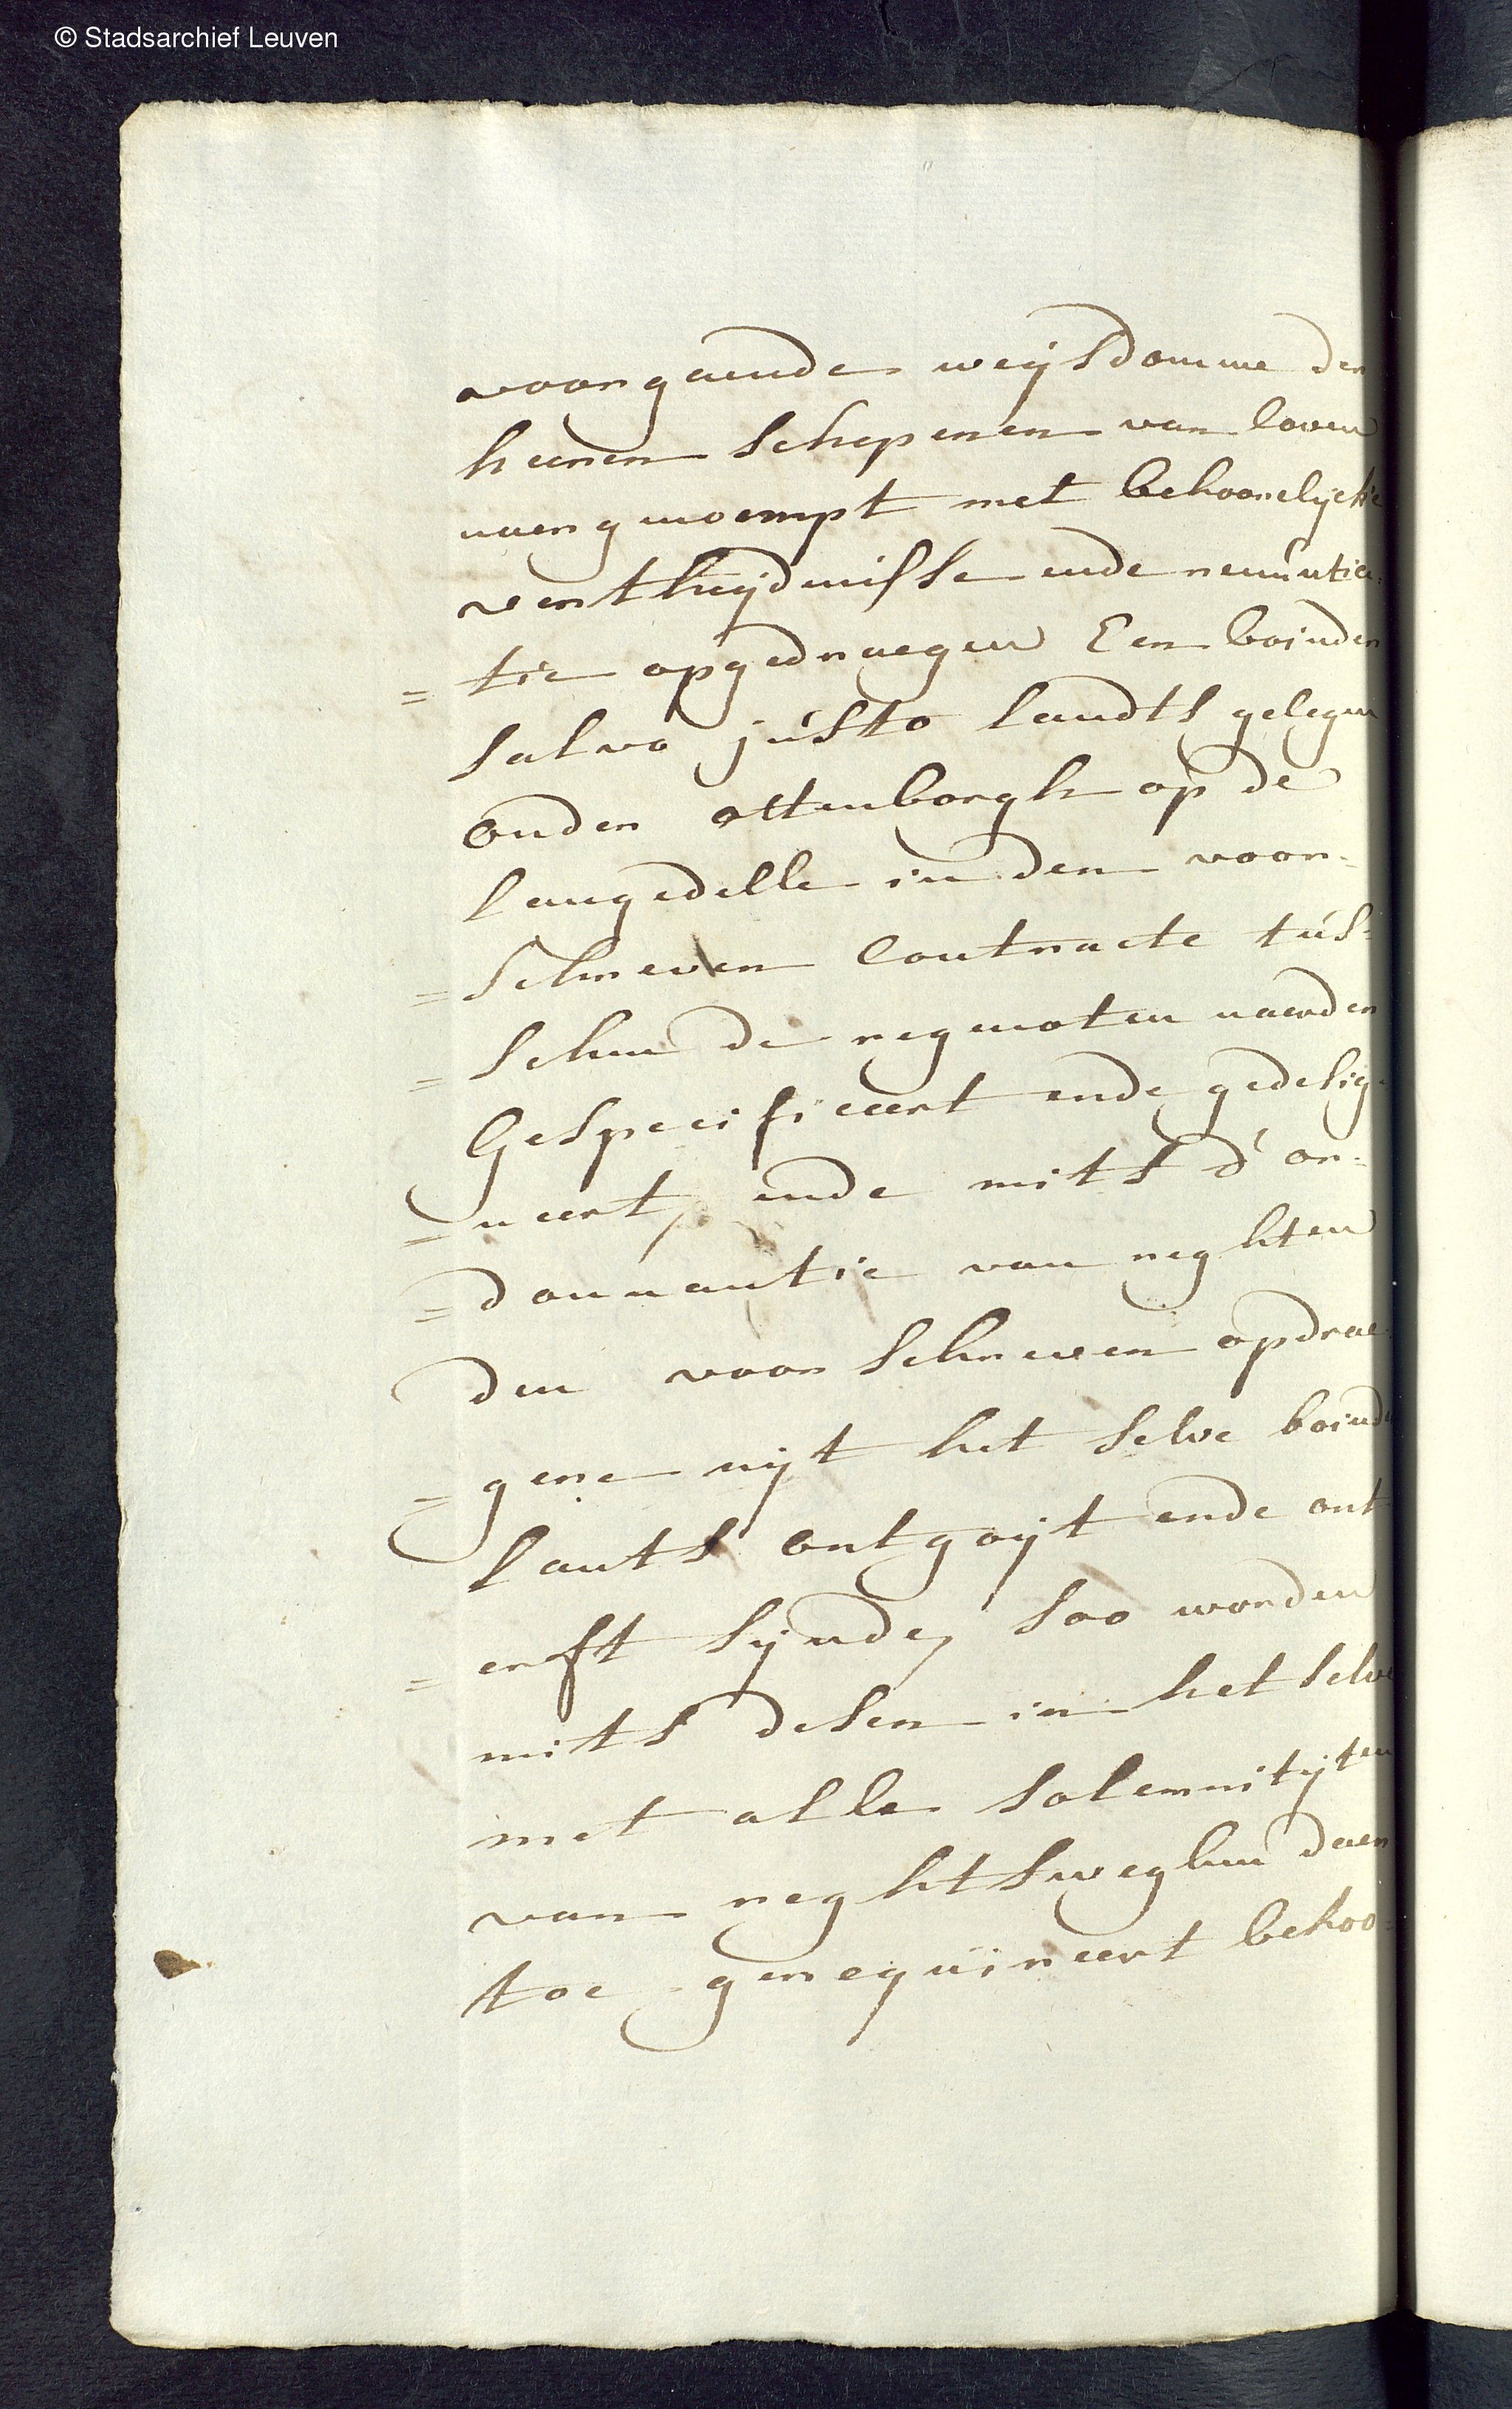 © Stadsarchief Leuven
voorgaende weijsdomme der
heeren schepenen van loven
naergenoempt met behoorelijcke
verthijdenisse ende renuntia-
= tie opgedraegen Een boinder
salvo justo landts gelegen
onder ottenborgh op de
langedelle in den voor-
= schreven contracte tus-
= schen de regenoten naerder
Gespecificeert ende gedesig-
= neert, ende mits d'or-
= donnantie van reghten
den voorschreven opdrae-
= gere uijt het selve boinder
lants ontgoijt ende ont-
= erft sijnde, soo worden
mits desen in het selve
met alle solemnitijten
van reghtsweghen daer
toe gerequireert behoo-